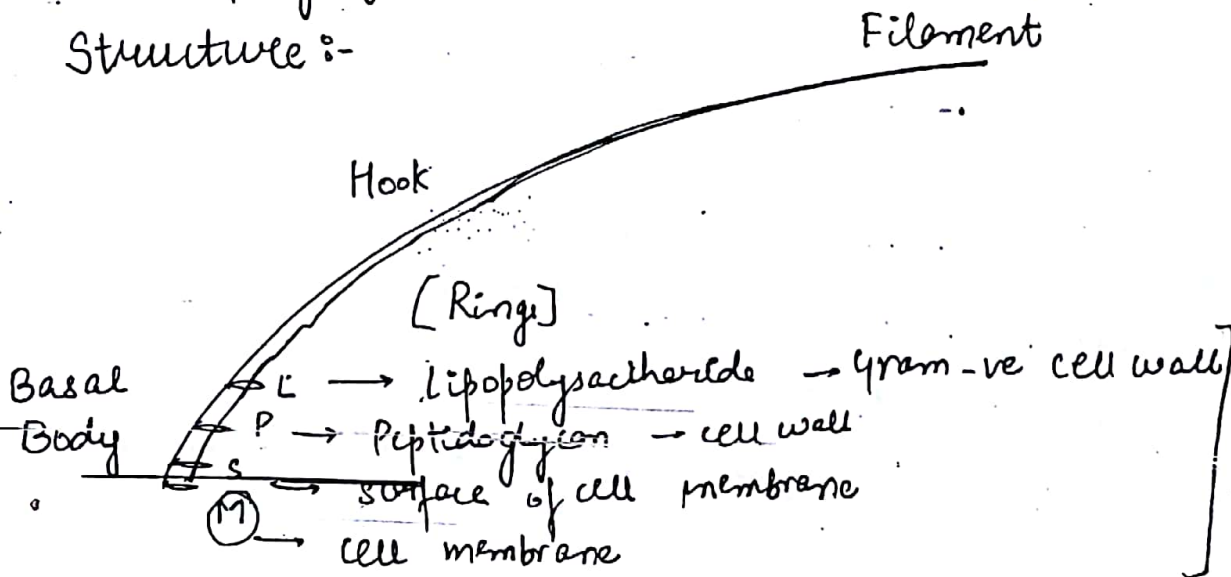 Structure :-
Filament
Hook
[Rings]
Basal Body
L → Lipopolysaccharide → Gram -ve cell wall
P → Peptidoglycan → cell wall
S → surface of cell membrane
M → cell membrane